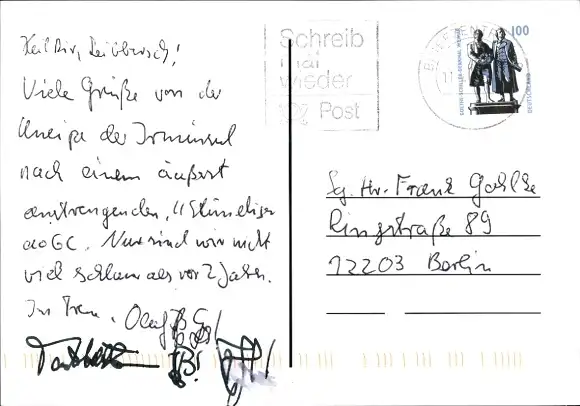 Heil Dir, Leibbursch!
Viele Grüße von der
Kneipe der Irminsul
nach einem äußerst
anstrengenden, 11 stündigen
aoGC. Nun sind wir nicht
viel schlauer als vor 2 Jahren.
In Treue, Olaf
Schreib
mal
wieder
Post
100
GOETHE-SCHILLER-DENKMAL WEIMAR
DEUTSCHLAND
Sg. Hr. Frank
Ringstraße 89
12203 Berlin